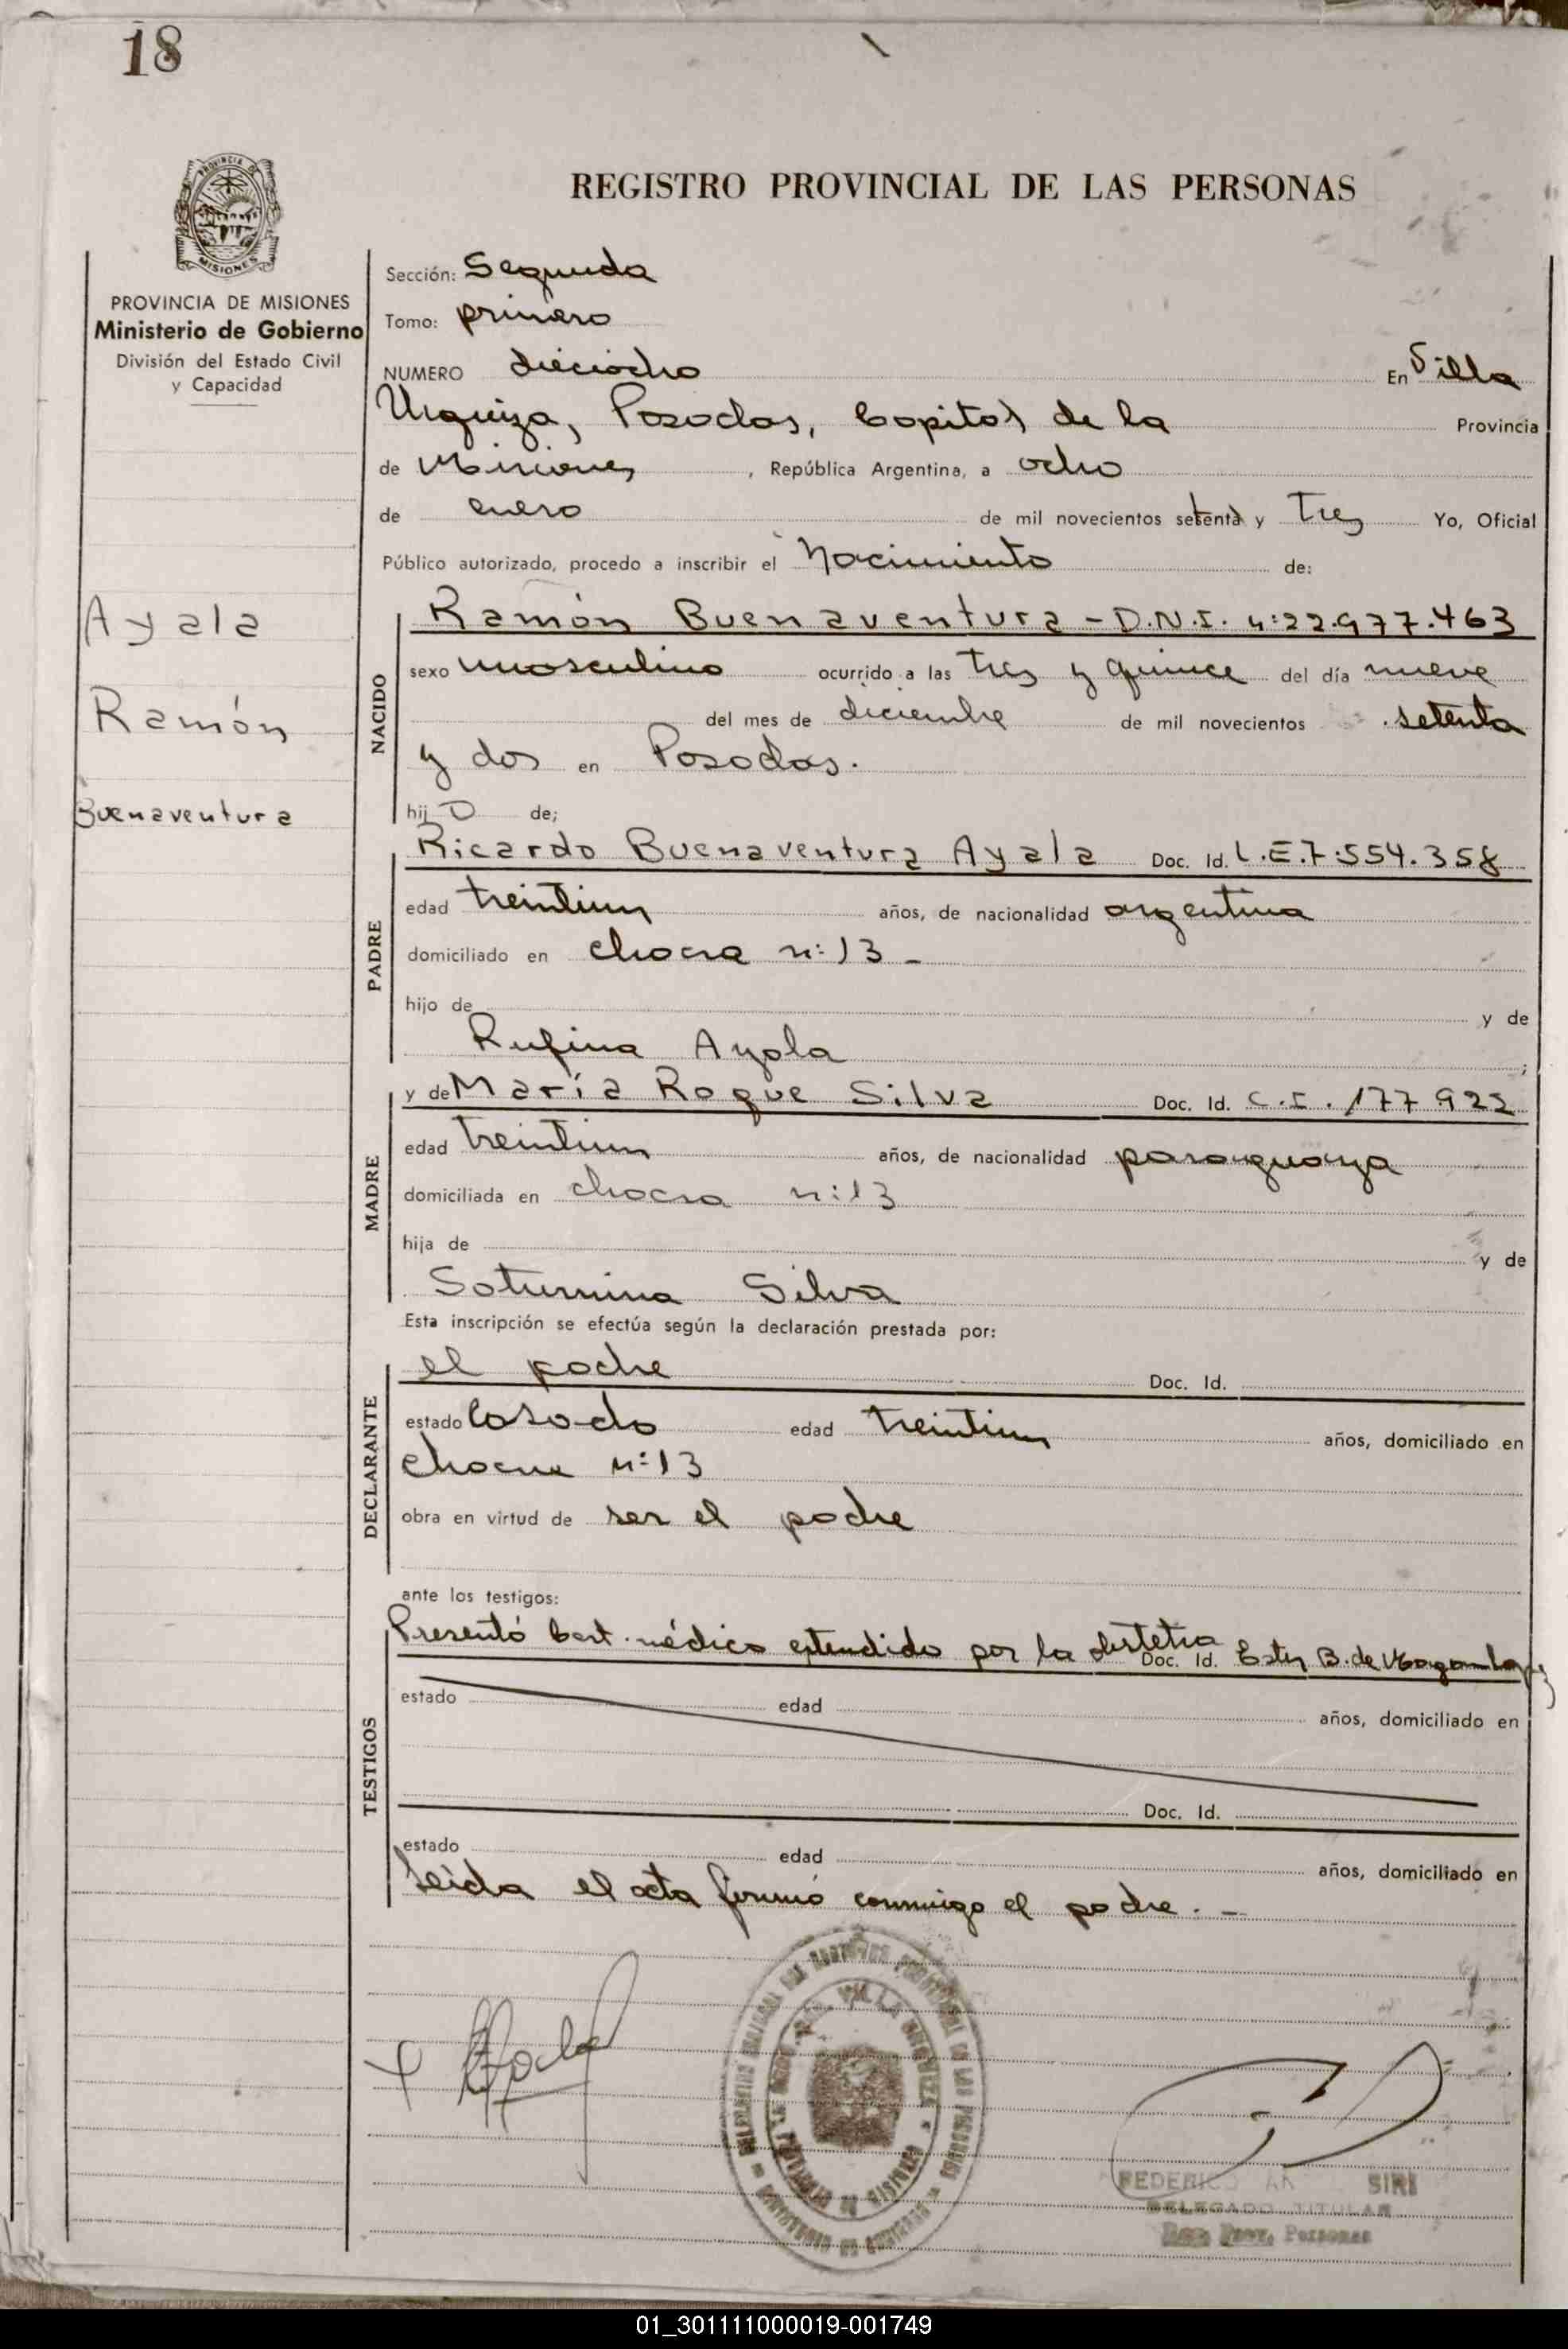 18
PROVINCIA DE
MISIONES
REGISTRO PROVINCIAL DE LAS PERSONAS
PROVINCIA DE MISIONES
Ministerio de Gobierno
División del Estado Civil
y Capacidad
Ayala
Ramón
Buenaventura
Sección: Segunda
Tomo: primero
NUMERO dieciocho En Villa
Urquiza, Posadas, Capital de la Provincia
de Misiones, República Argentina, a ocho
de enero de mil novecientos setenta y Tres Yo, Oficial
Público autorizado, procedo a inscribir el Nacimiento de:
NACIDO
Ramón Buenaventura - D.N.I. n:22.977.463
sexo masculino ocurrido a las tres y quince del día nueve
del mes de diciembre de mil novecientos setenta
y dos en Posadas.
hij O de;
PADRE
Ricardo Buenaventura Ayala Doc. Id. L.E.7.554.358
edad treintiun años, de nacionalidad argentina
domiciliado en chacra n:13 -
hijo de y de
Rufina Ayala ;
MADRE
y de María Roque Silva Doc. Id. C.I. 177922
edad treintiun años, de nacionalidad paraguaya
domiciliada en chacra n:13
hija de y de
Saturnina Silva
Esta inscripción se efectúa según la declaración prestada por:
DECLARANTE
el padre Doc. Id.
estado casado edad treintiun años, domiciliado en
chacra n:13
obra en virtud de ser el padre
ante los testigos:
TESTIGOS
Presentó Cert. médico extendido por la obstetra Doc. Id. Ester B. de
estado edad años, domiciliado en
Doc. Id.
estado edad años, domiciliado en
Leída el acta firmó conmigo el padre. -
VILLA URQUIZA
FEDERICO SIRI
DELEGADO TITULAR
Reg. Prov. Personas
01_301111000019-001749